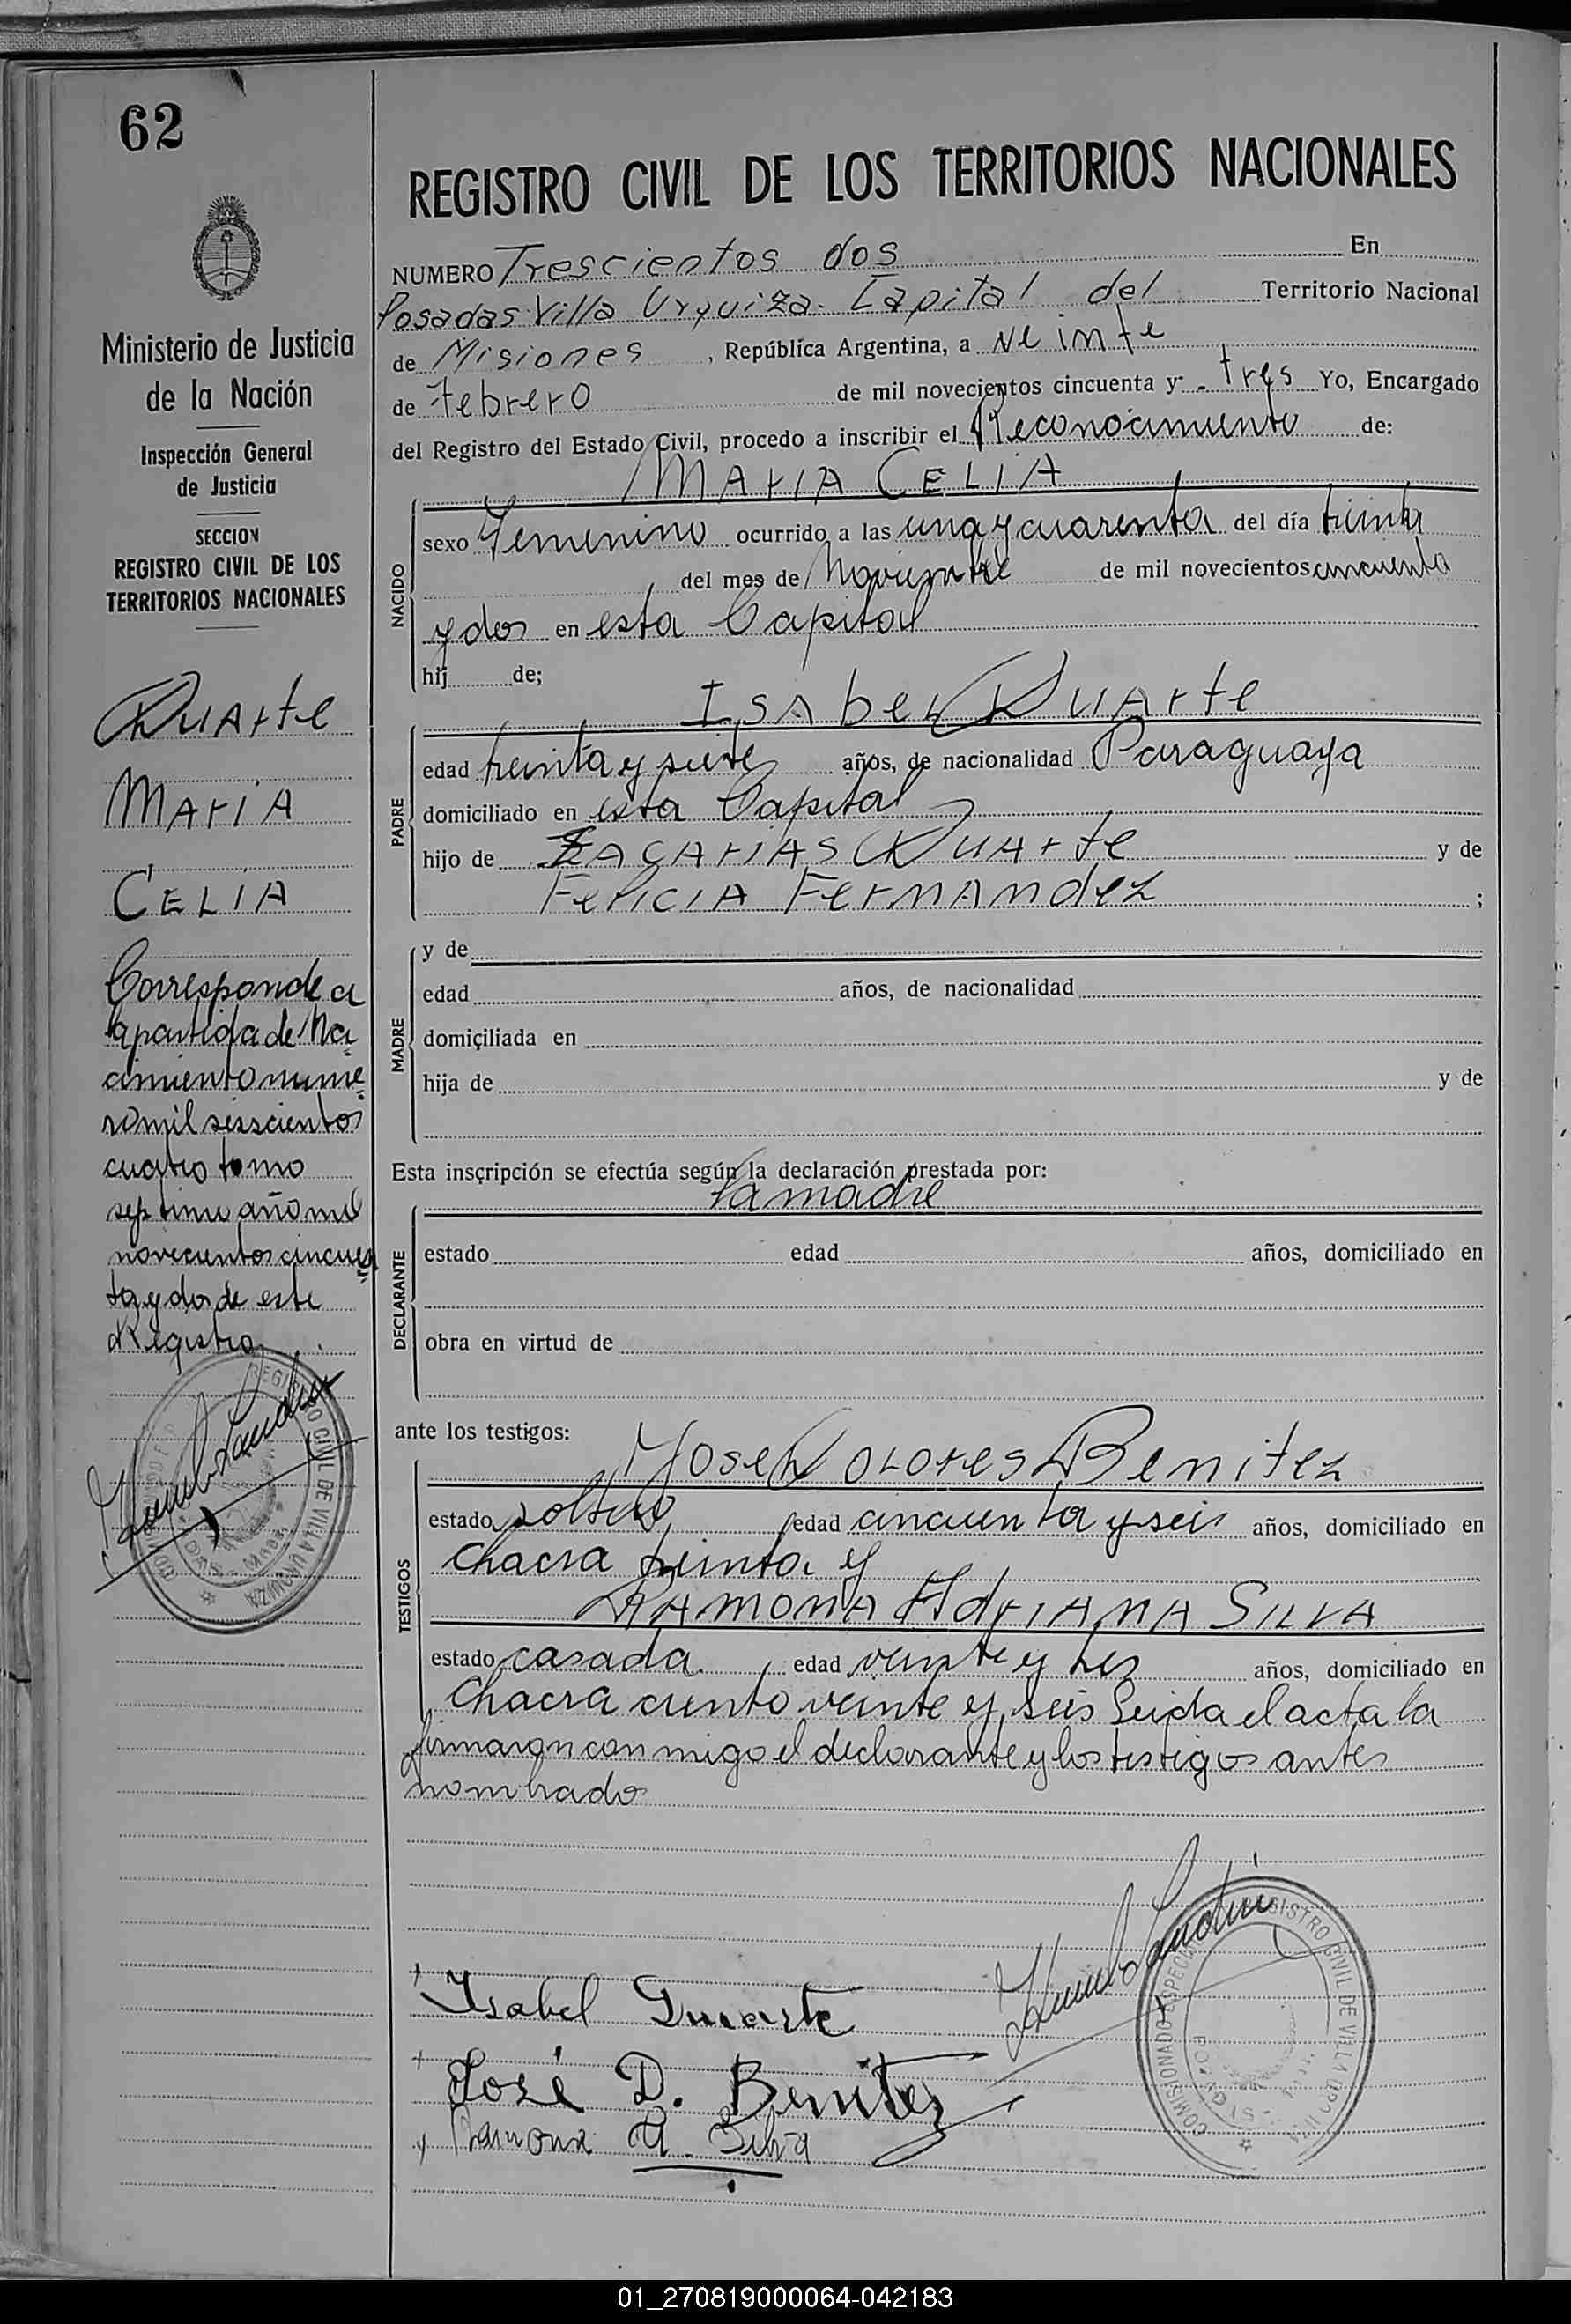 62
Ministerio de Justicia
de la Nación
Inspección General
de Justicia
SECCION
REGISTRO CIVIL DE LOS
TERRITORIOS NACIONALES
Duarte
Maria
Celia
Corresponde a
la partida de Na
cimiento nume
ro mil seiscientos
cuatro tomo
septimo año mil
novecientos cincuen
ta y dos de este
Registro
REGISTRO CIVIL DE VILLA URQUIZA
REGISTRO CIVIL DE LOS TERRITORIOS NACIONALES
NUMERO Trescientos dos En
Posadas Villa Urquiza. Capital del Territorio Nacional
de Misiones, República Argentina, a veinte
de Febrero de mil novecientos cincuenta y tres Yo, Encargado
del Registro del Estado Civil, procedo a inscribir el Reconocimiento de:
MARIA CELIA
NACIDO
sexo Femenino ocurrido a las una y cuarenta del día treinta
del mes de Noviembre de mil novecientos cincuenta
y dos en esta Capital
hij de;
Isabel Duarte
PADRE
edad treinta y siete años, de nacionalidad Paraguaya
domiciliado en esta Capital
hijo de Zacarias Duarte y de
Felicia Fernandez ;
MADRE
y de
edad años, de nacionalidad
domiciliada en
hija de y de
Esta inscripción se efectúa según la declaración prestada por:
la madre
DECLARANTE
estado edad años, domiciliado en
obra en virtud de
ante los testigos:
Jose Dolores Benitez
TESTIGOS
estado soltero edad cincuenta y seis años, domiciliado en
Chacra treinta y
Ramona Adriana Silva
estado casada edad veinte y tres años, domiciliado en
Chacra ciento veinte y seis Leida el acta la
firmaron conmigo el declarante y los testigos antes
nombrado
Isabel Duarte
José D. Benitez
Ramona A. Silva
COMISIONADO ESPECIAL REGISTRO CIVIL DE VILLA URQUIZA
01_270819000064-042183